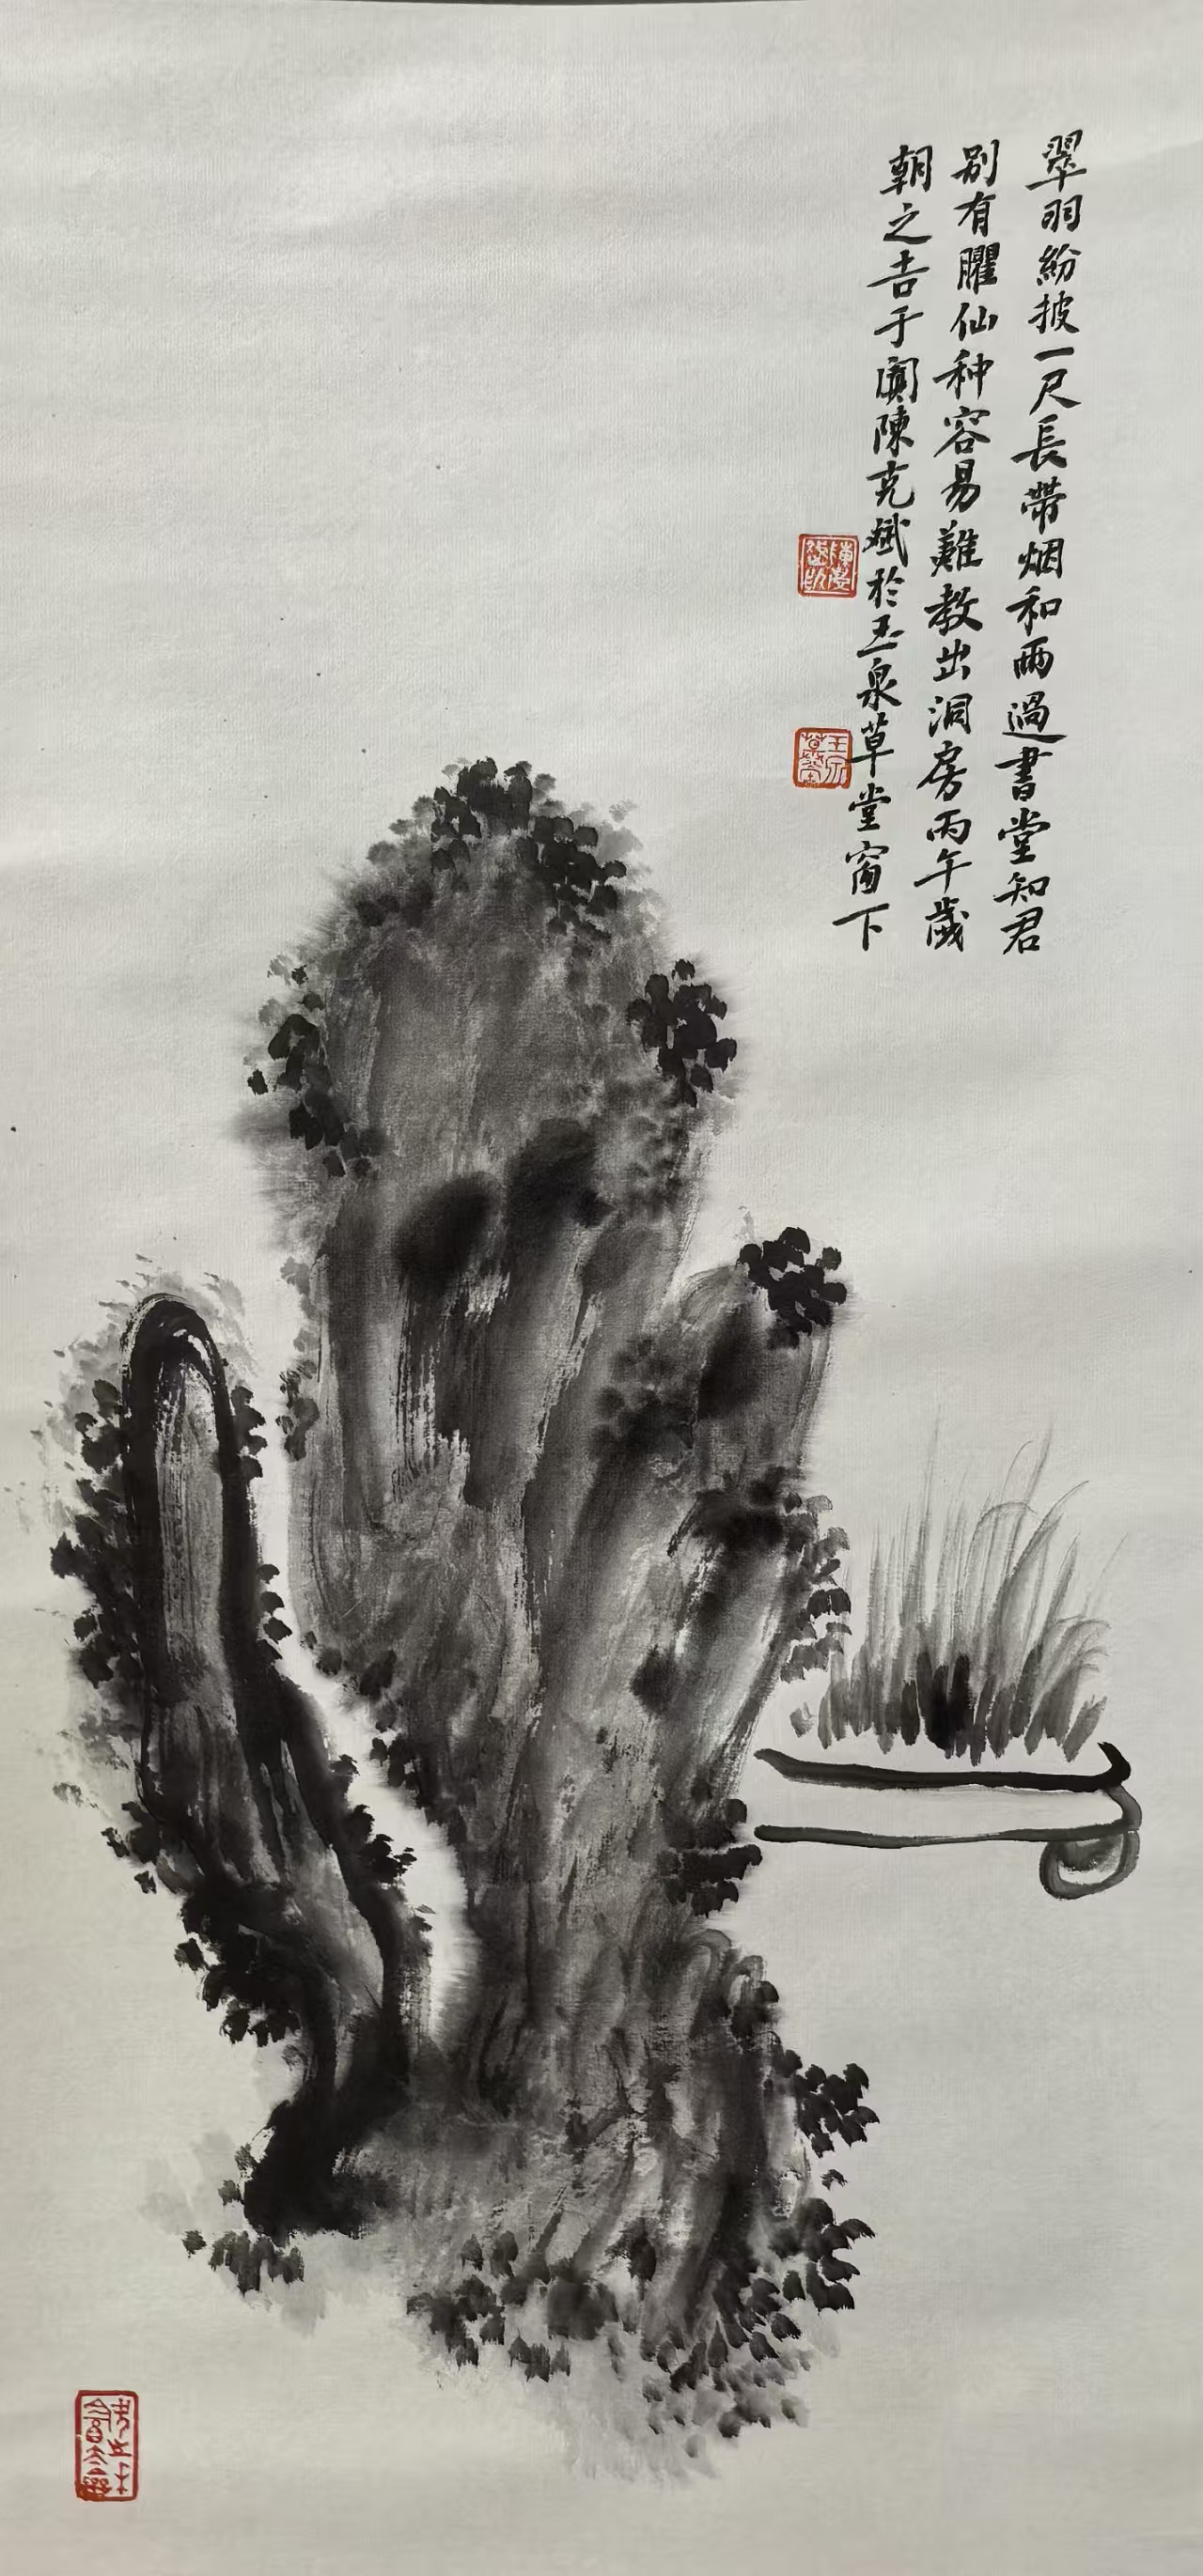 翠羽紛披一尺長帶烟和雨過書堂知君
别有臞仙种容易難教出洞房丙午歲
朝之吉于閩陳克斌於玉泉草堂窗下